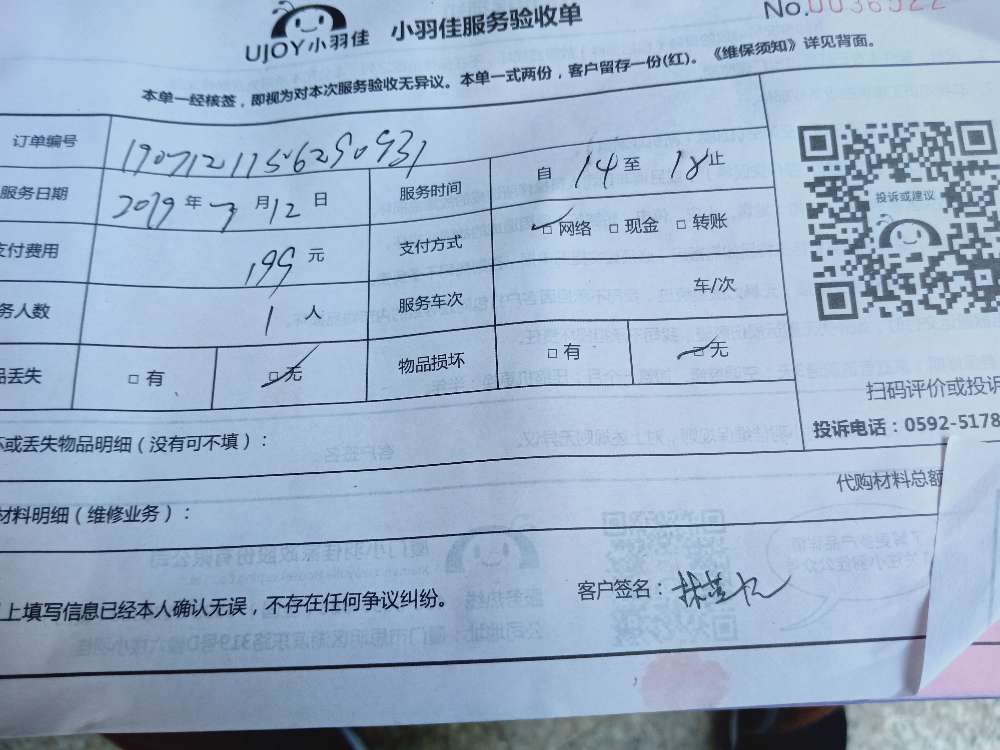 UJOY小羽佳 小羽佳服务验收单 No.0036522
本单一经核签，即视为对本次服务验收无异议。本单一式两份，客户留存一份(红)。《维保须知》详见背面。
订单编号
服务日期 2019 年 7 月 12 日 服务时间 自 14 至 18 止
支付费用 199 元 支付方式 网络 现金 转账
务人数 1 人 服务车次 车/次
品丢失 有 无 物品损坏 有 无
投诉或建议
扫码评价或投诉
投诉电话：0592-5178
坏或丢失物品明细（没有可不填）：
代购材料总额
材料明细（维修业务）：
上填写信息已经本人确认无误，不存在任何争议纠纷。 客户签名：